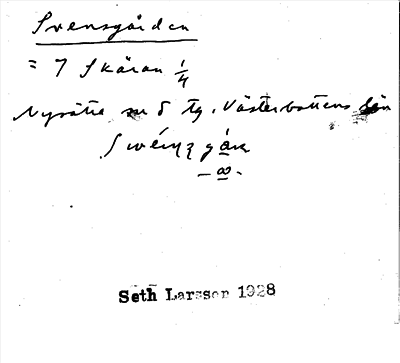 Svensgården
= 7 Skäran 1/4
Nysätra sn Västerbottens län
Swénzgáḷn
Seth Larsson 1928